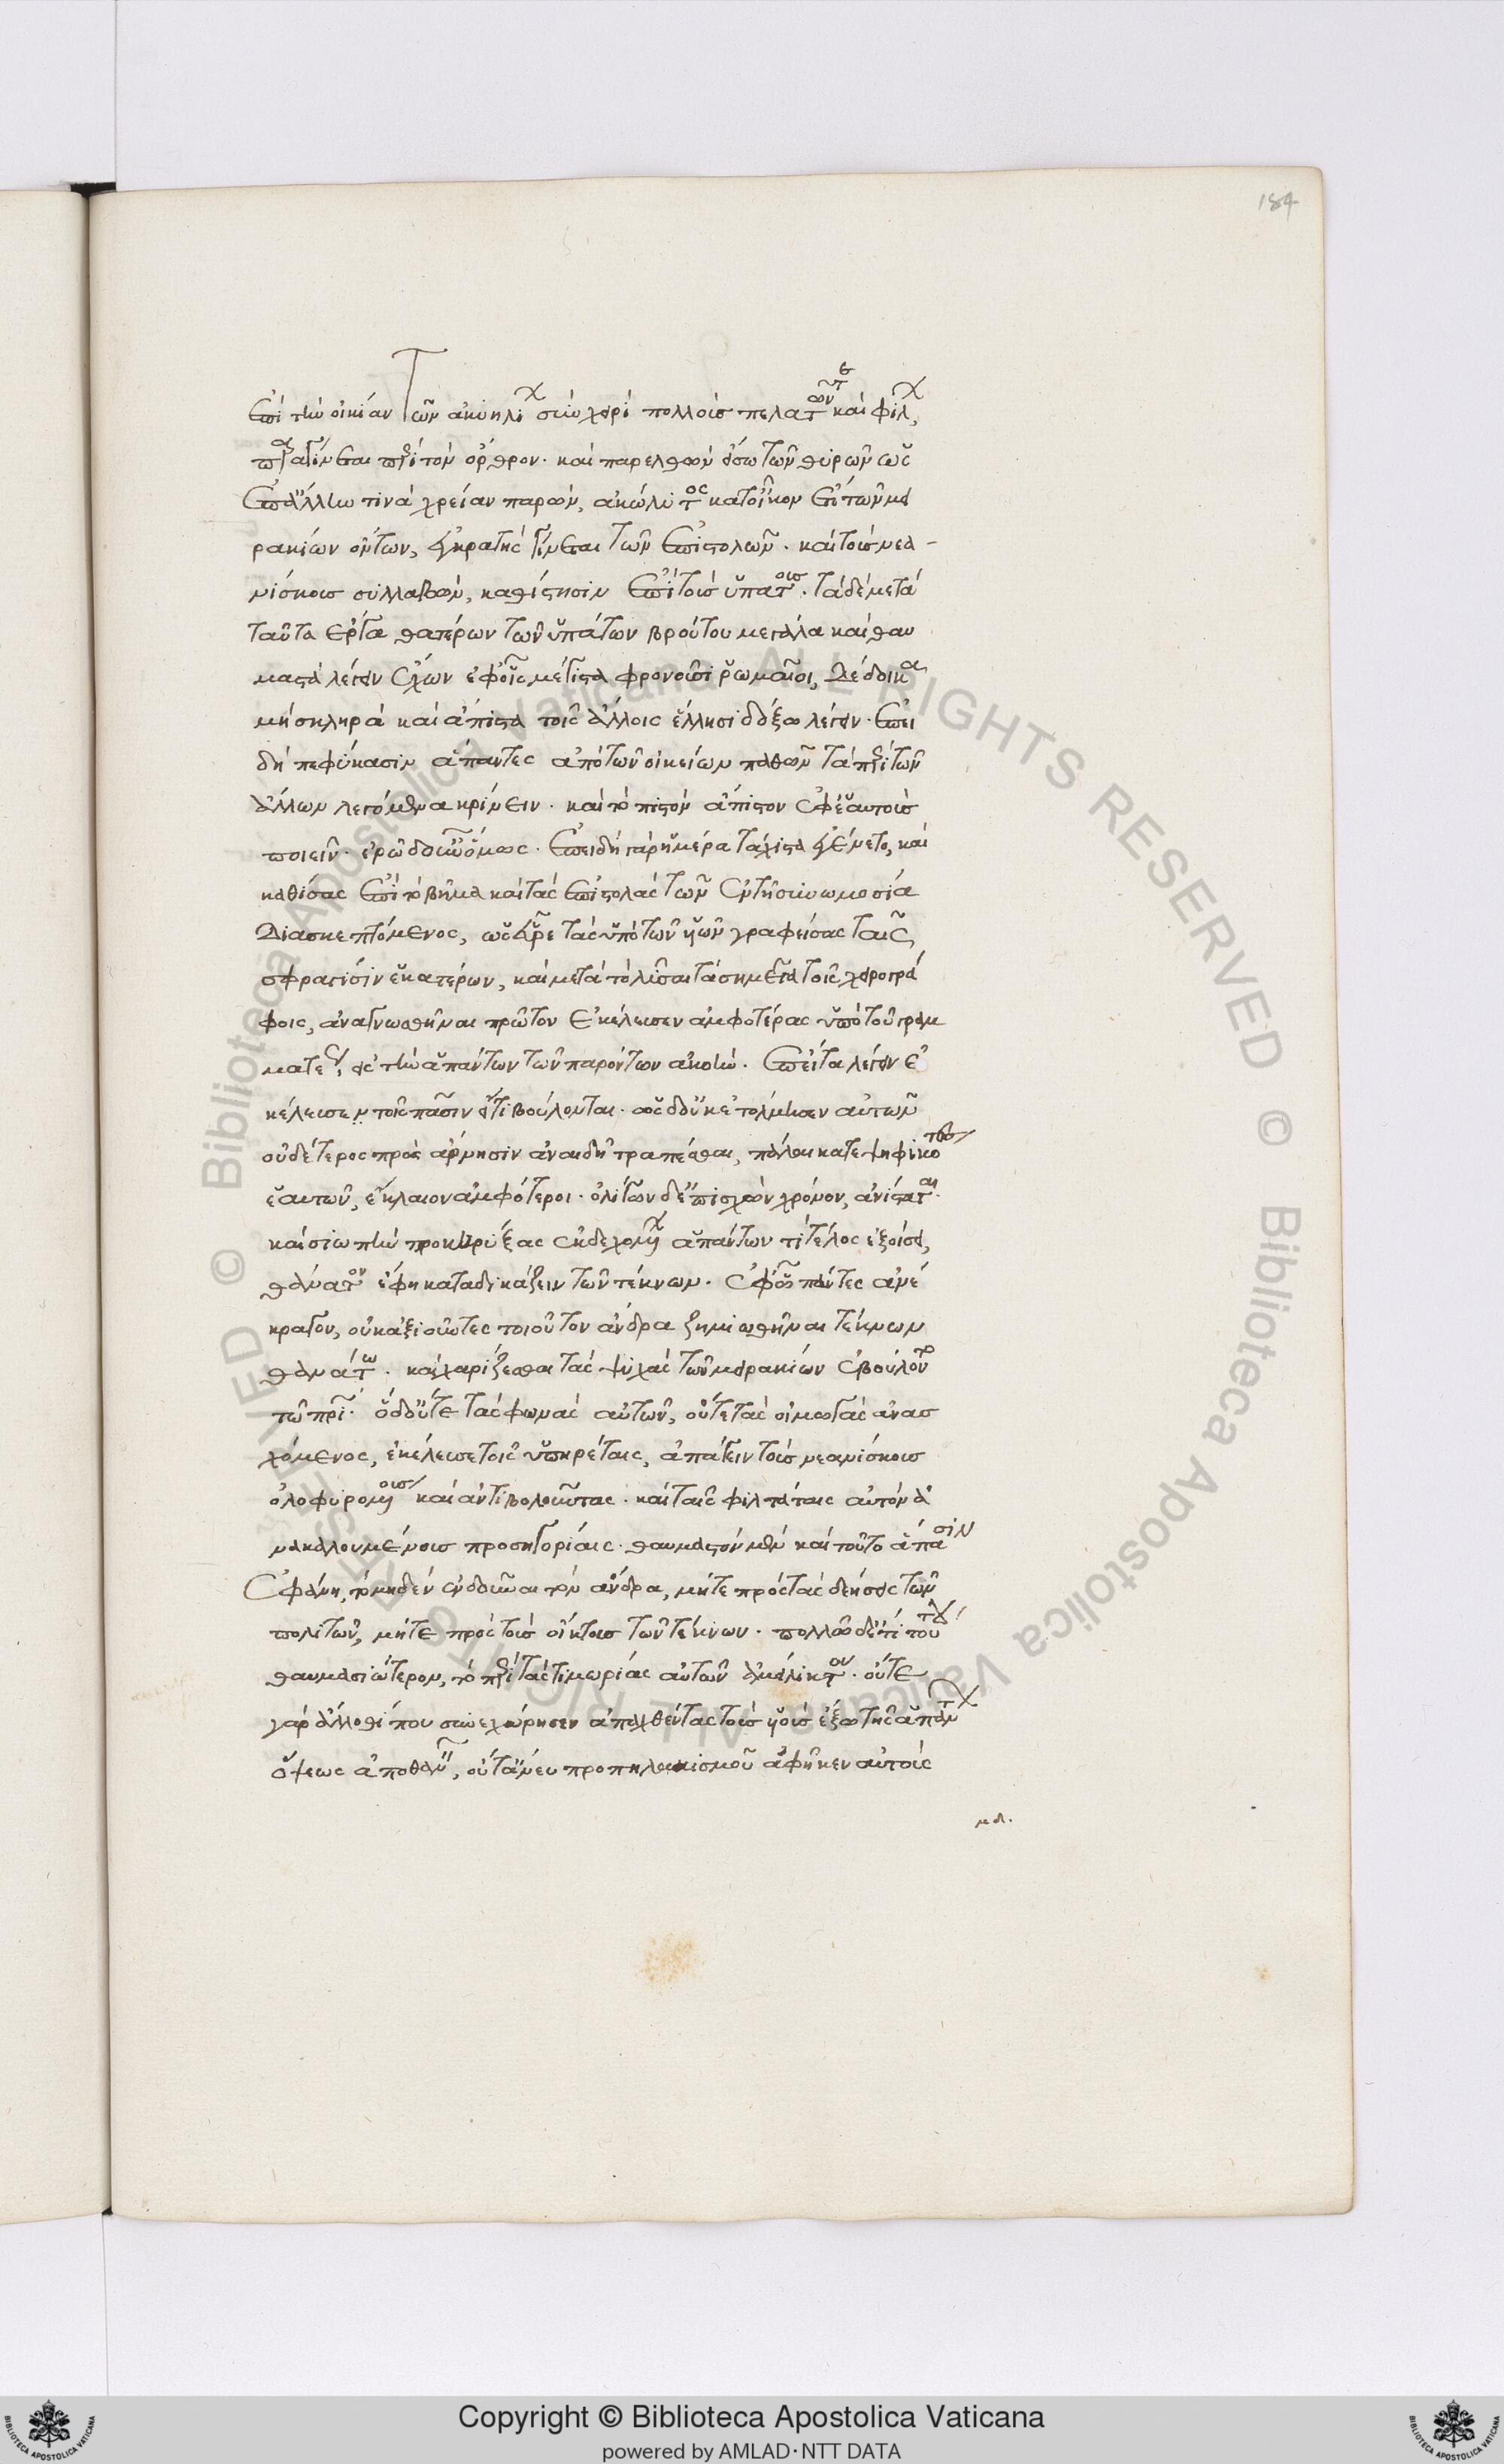 184
ἐπὶ τὴν οἰκίαν τῶν ἀκυηλί σὺν χειρὶ πολλοῖς πελατῶν τε καὶ φίλ,
παραγίνεται περὶ τὸν ὄρθρον. καὶ παρελθὼν εἴσω τῶν θυρῶν ὡς
ἐπ' ἄλλην τινὰ χρείαν παρών, ἀκωλύτος κατοῖκον ἔτι τῶν μει
ρακίων ὄντων, ἐγκρατὴς γίνεται τῶν ἐπιστολῶν. καὶ τοὺς νεα -
νίσκους συλλαβών, καθίστησιν ἐπὶ τοὺς ὑπάτους. τὰ δὲ μετὰ
ταῦτα ἔργα θατέρων τῶν ὑπάτων βρούτου μεγάλα καὶ θαυ
μαστὰ λέγειν ἔχων ἐφ' οἷς μέγιστα φρονοῦσι ῥωμαῖοι, δέδοικα
μὴ σκληρὰ καὶ ἄπιστα τοῖς ἄλλοις ἕλλησι δόξω λέγειν. ἐπει
δὴ πεφύκασιν ἅπαντες ἀπὸ τῶν οἰκείων παθῶν τὰ περὶ τῶν
ἄλλων λεγόμενα κρίνειν. καὶ τὸ πιστὸν ἄπιστον ἐφ' ἑαυτοὺς
ποιεῖν. ἐρῶ δ' οὖν ὅμως. ἐπειδὴ γὰρ ἡμέρα τάχιστα ἐγένετο, καὶ
καθίσας ἐπὶ τὸ βῆμα καὶ τὰς ἐπιστολὰς τῶν ἐν τῇ συνωμοσία
διασκεπτόμενος, ὡς εὗρε τὰς ὑπὸ τῶν υἱῶν γραφείσας ταῖς
σφραγίσιν ἑκατέρων, καὶ μετὰ τὸ λῦσαι τὰ σημεῖα τοῖς χειρογρά
φοις, ἀναγνωσθῆναι πρῶτον ἐκέλευσεν ἀμφοτέρας ὑπὸ τοῦ γραμ
ματέως, εἰς τὴν ἁπάντων τῶν παρόντων ἀκοήν. ἔπειτα λέγειν ἐ
κέλευσεν τοῖς πᾶσιν εἴ τι βούλονται. ὡς δ' οὐκ ἐτόλμησεν αὐτῶν
οὐδέτερος πρὸς ἄρνησιν ἀναιδῆ τραπέσθαι, πάλαι κατεψηφικότες
ἑαυτῶν, ἔκλαιον ἀμφότεροι. ὀλίγον δ' ἐπισχὼν χρόνον, ἀνίσταται.
καὶ σιωπὴν προκηρύξας ἐκδεχομένων ἁπάντων τί τέλος ἐξοίσει,
θάνατον ἔφη καταδικάζειν τῶν τέκνων. ἐφ' ᾧ πάντες ἀνέ
κραγον, οὐκ ἀξιοῦντες τοιοῦτον ἄνδρα ζημιωθῆναι τέκνων
θανάτω. καὶ χαρίζεσθαι τὰς ψυχὰς τῶν μειρακίων ἐβούλοντο
τῶ πρί. ὁ δ' οὔτε τὰς φωνὰς αὐτῶν, οὔτε τὰς οἰμωγὰς ἀνασ
χόμενος, ἐκέλευσε τοῖς ὑπηρέταις, ἀπάγειν τοὺς νεανίσκους
ὀλοφυρομένους καὶ ἀντιβολοῦντας. καὶ ταῖς φιλτάταις αὐτὸν ἀ
νακαλουμένους προσηγορίαις. θαυμαστὸν μὲν καὶ τοῦτο ἅπασιν
ἐφάνη, τὸ μηδὲν ἐνδοῦναι τὸν ἄνδρα, μήτε πρὸς τὰς δεήσεις τῶν
πολιτῶν, μήτε πρὸς τοὺς οἴκτους τῶν τέκνων. πολλῶ δ' ἔτι τούτων
θαυμασιώτερον, τὸ περὶ τὰς τιμωρίας αὐτῶν ἀμείλικτον. οὔτε
γὰρ ἄλλοθί που συνεχώρησεν ἀπαχθέντας τοὺς υἱοὺς ἔξω τῆς ἁπάντων
ὄψεως ἀποθανεῖν, οὔτ' ἄνευ προπηλακισμοῦ ἀφῆκεν αὐτοὺς